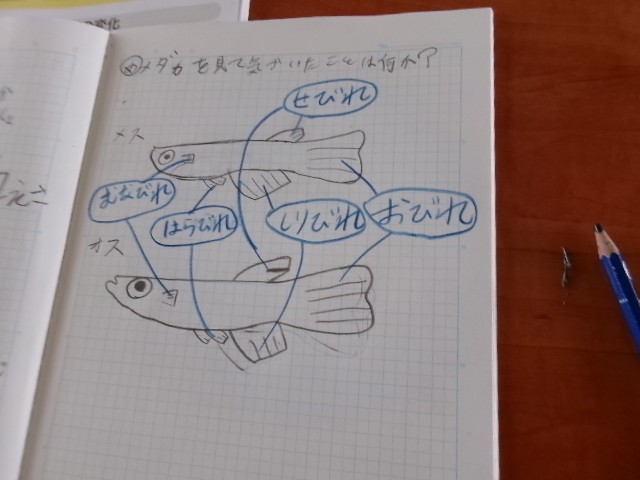 変化
めメダカを見て気がいたことは何か?
せびれ
メス
むなびれ
はらびれ
しりびれ
おびれ
オス